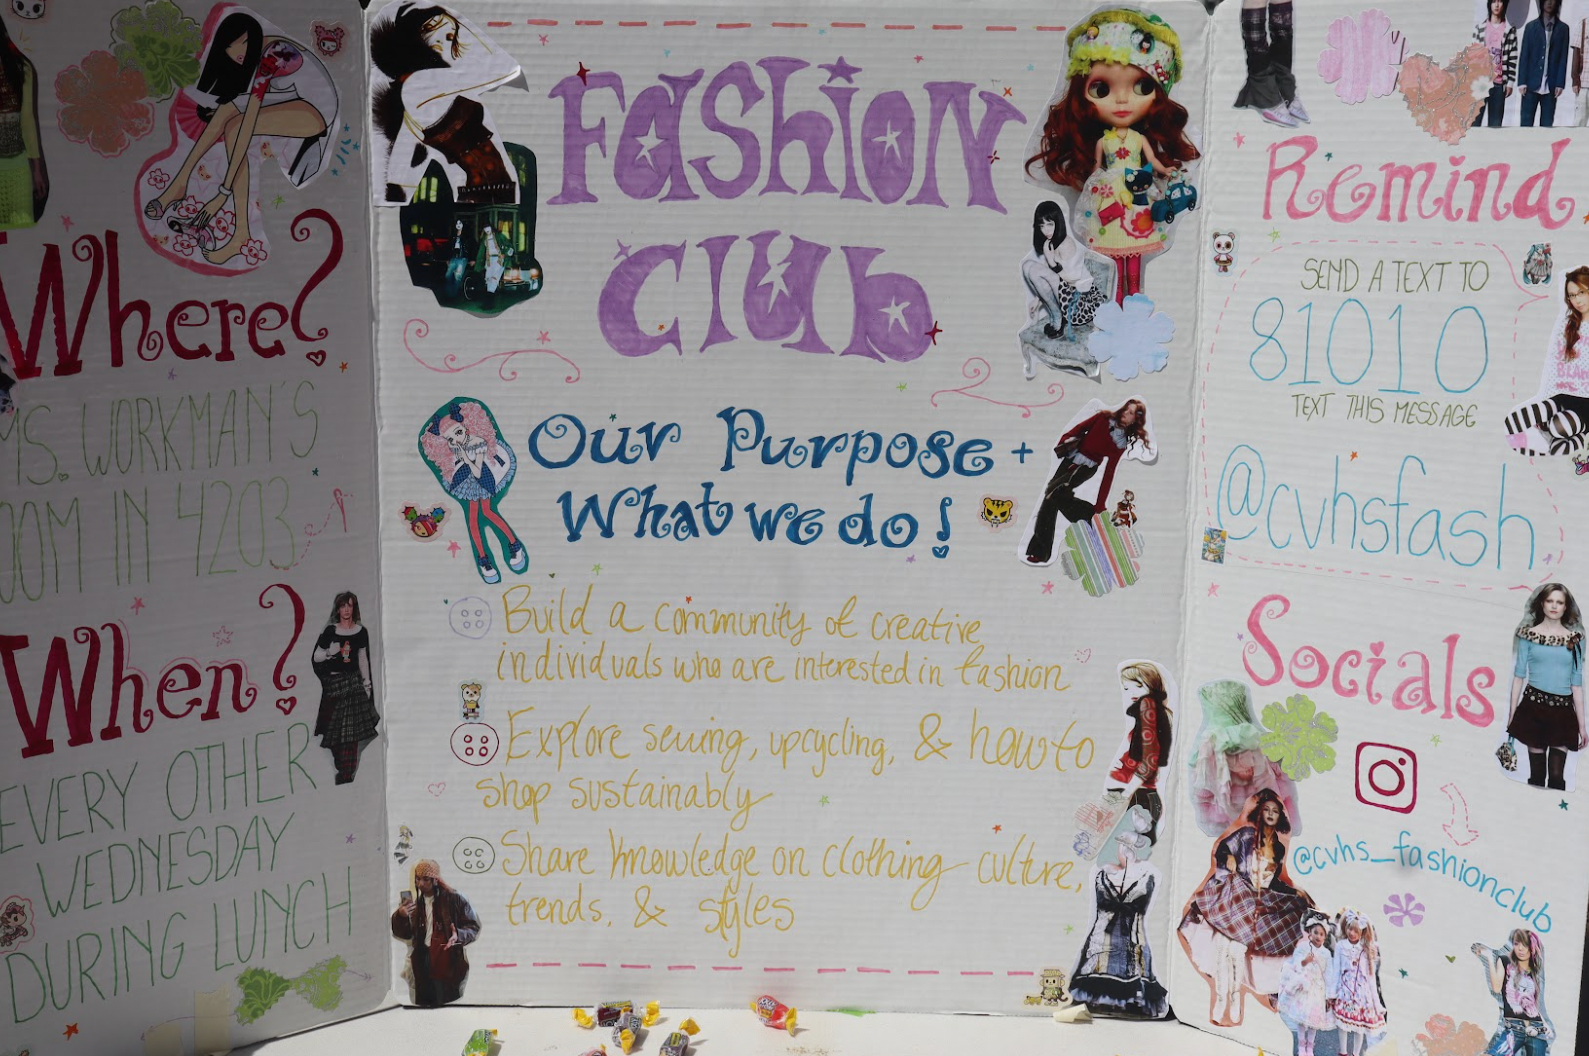 Where?
MS. WORKMAN'S
ROOM IN 4203
When?
EVERY OTHER
WEDNESDAY
DURING LUNCH
Fashion
Club
Our Purpose +
What we do!
Build a community of creative
individuals who are interested in fashion
Explore sewing, upcycling, & how to
shop sustainably
Share knowledge on clothing culture,
trends, & styles
Remind
SEND A TEXT TO
81010
TEXT THIS MESSAGE
@cvhsfash
Socials
@cvhs_fashionclub